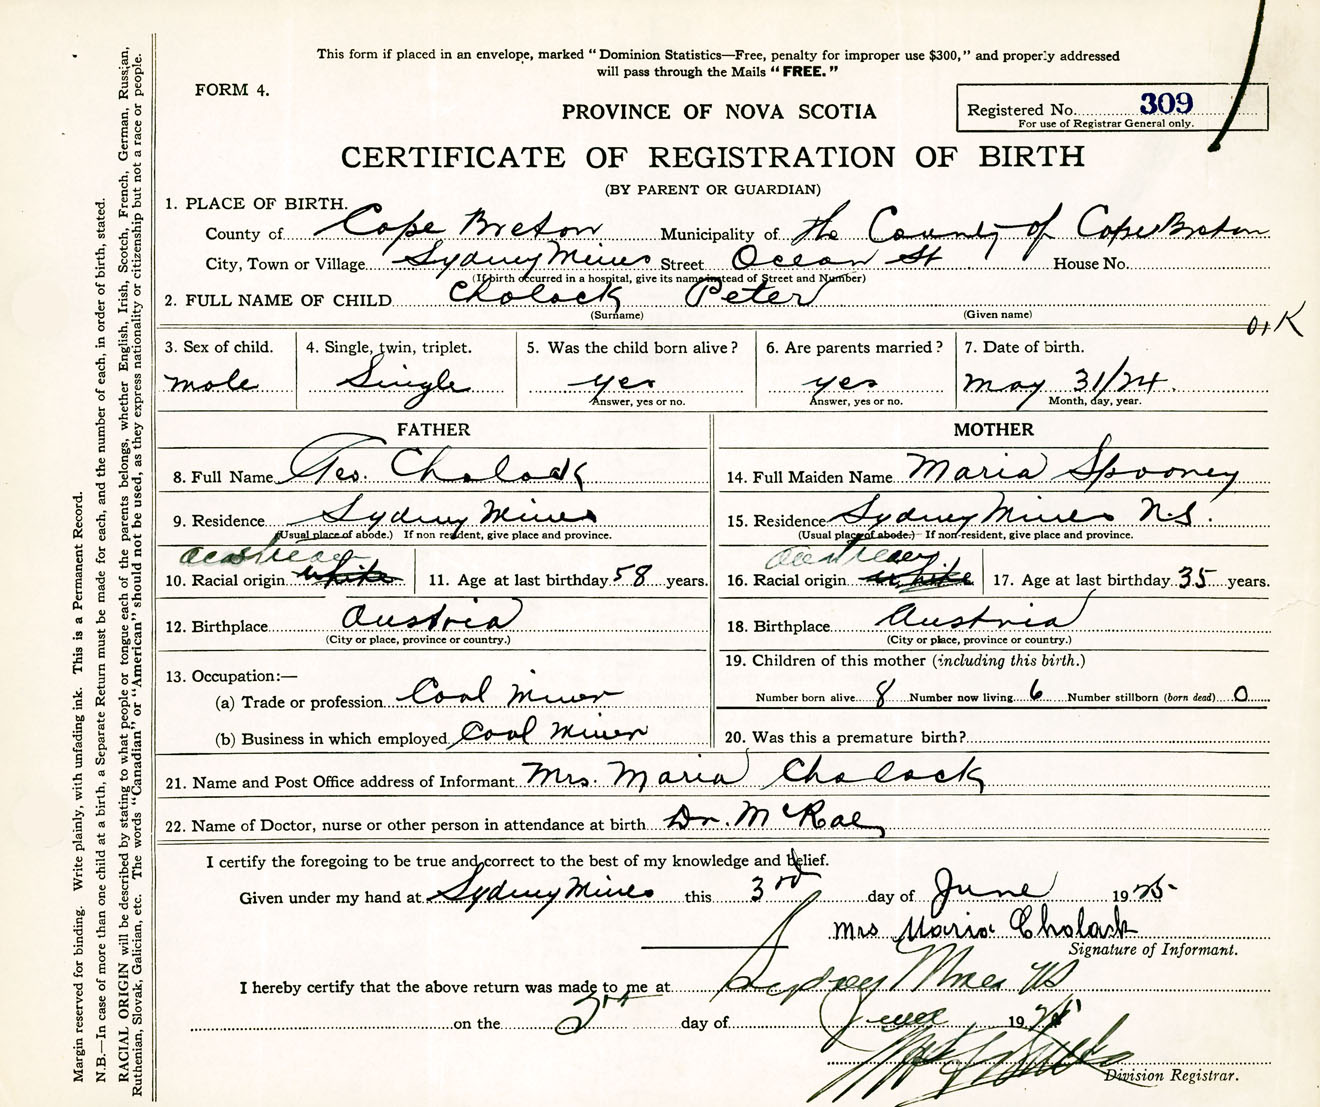 This form if placed in an envelope, marked "Dominion Statistics—Free, penalty for improper use $300," and properly addressed
will pass through the Mails "FREE."
FORM 4.
PROVINCE OF NOVA SCOTIA
Registered No. 309
For use of Registrar General only.
CERTIFICATE OF REGISTRATION OF BIRTH
(BY PARENT OR GUARDIAN)
1. PLACE OF BIRTH.
County of Cape Breton Municipality of the County of Cape Breton
City, Town or Village Sydney Mines Street Ocean St House No.
(If birth occurred in a hospital, give its name instead of Street and Number)
2. FULL NAME OF CHILD Cholock Peter
(Surname) (Given name)
O,K
3. Sex of child. 4. Single, twin, triplet. 5. Was the child born alive? 6. Are parents married? 7. Date of birth.
male Single yes yes May 31/24
Answer, yes or no. Answer, yes or no. Month, day, year.
FATHER MOTHER
8. Full Name Geo. Cholock 14. Full Maiden Name Maria Spooney
9. Residence Sydney Mines 15. Residence Sydney Mines N.S.
(Usual place of abode.) If non resident, give place and province. (Usual place of abode.) If non-resident, give place and province.
10. Racial origin white 11. Age at last birthday 58 years. 16. Racial origin white 17. Age at last birthday 35 years.
12. Birthplace Austria 18. Birthplace Austria
(City or place, province or country.) (City or place, province or country.)
13. Occupation:— 19. Children of this mother (including this birth.)
(a) Trade or profession Coal Miner Number born alive 8 Number now living 6 Number stillborn (born dead) 0
(b) Business in which employed Coal Miner 20. Was this a premature birth?
21. Name and Post Office address of Informant Mrs. Maria Cholock
22. Name of Doctor, nurse or other person in attendance at birth Dr. McRae
I certify the foregoing to be true and correct to the best of my knowledge and belief.
Given under my hand at Sydney Mines this 3rd day of June 1925
Mrs Maria Cholock
Signature of Informant.
I hereby certify that the above return was made to me at Sydney Mines NS
on the 3rd day of June 19
Division Registrar.
Margin reserved for binding. Write plainly, with unfading ink. This is a Permanent Record.
N.B.—In case of more than one child at a birth, a Separate Return must be made for each, and the number of each, in order of birth, stated.
RACIAL ORIGIN will be described by stating to what people or tongue each of the parents belongs, whether English, Irish, Scotch, French, German, Russian,
Ruthenian, Slovak, Galician, etc. The words "Canadian" or "American" should not be used, as they express nationality or citizenship but not a race or people.